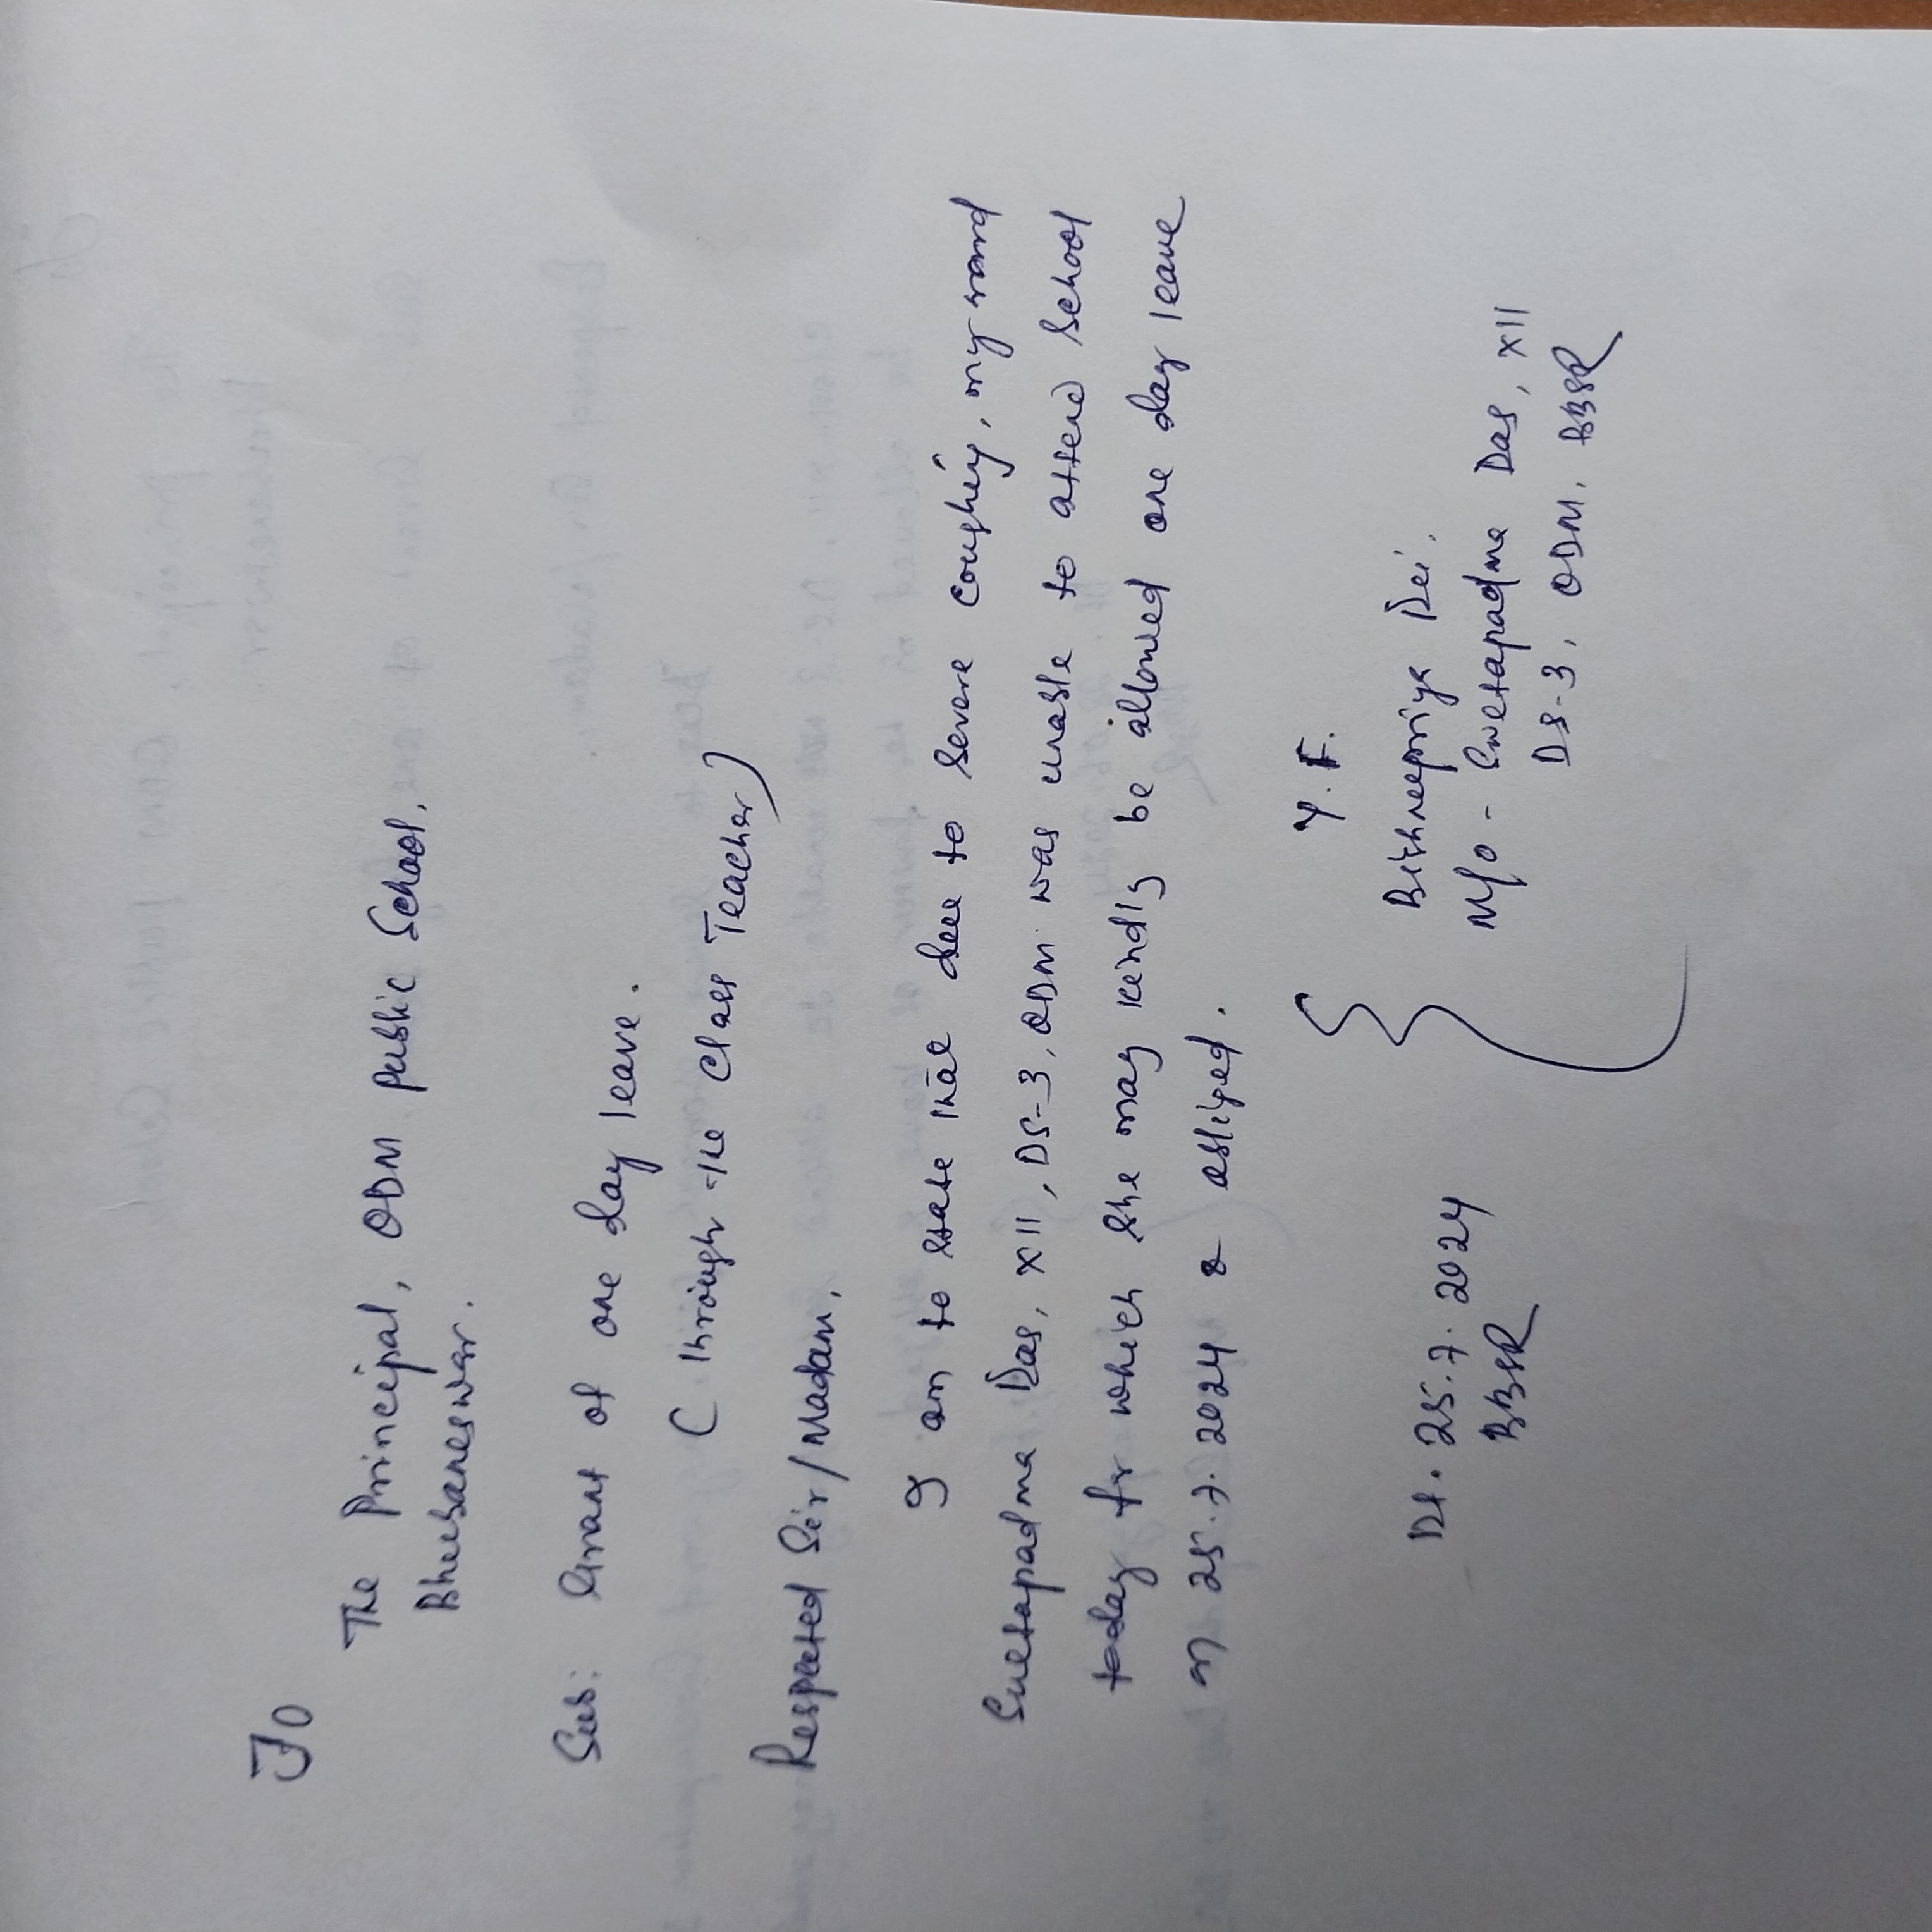 To
The Principal, ODM Public School,
Bhubaneswar.
Sub: Grant of one day leave.
(Through the Class Teacher)
Respected Sir/Madam,
I am to state that due to severe coughing, my ward
Swetapadma Das, XII, DS-3, ODM was unable to attend school
today for which she may kindly be allowed one day leave
on 25.7.2024 & obliged.
Y.F.
Bishnupriya Dei.
M/o - Swetapadma Das, XII
DS-3, ODM, BBSR
Dt. 25.7.2024
BBSR